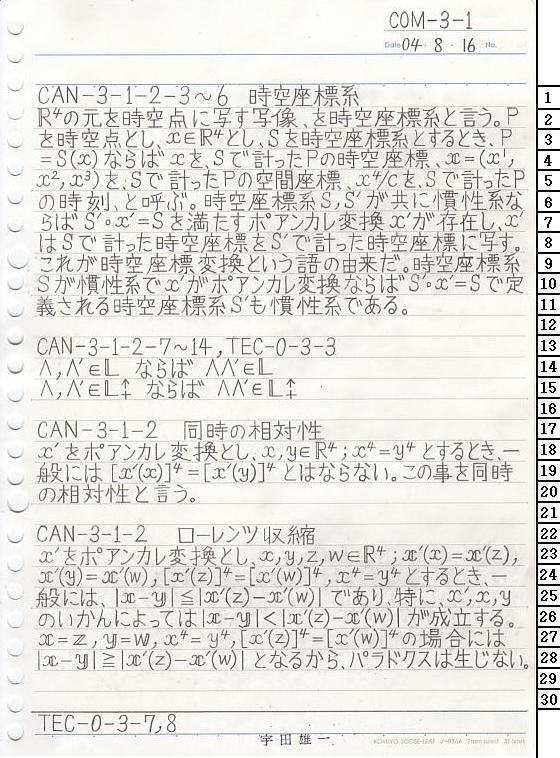 COM-3-1
Date 04・8・16 No.
CAN-3-1-2-3～6 時空座標系
ℝ⁴の元を時空点に写す写像、を時空座標系と言う。P
を時空点とし、x∈ℝ⁴とし、Sを時空座標系とするとき、P
=S(x)ならばxを、Sで計ったPの時空座標、x=(x¹,
x²,x³)を、Sで計ったPの空間座標、x⁴/cを、Sで計ったP
の時刻、と呼ぶ。時空座標系S,S′が共に慣性系な
らばS′∘x′=Sを満たすポアンカレ変換x′が存在し、x′
はSで計った時空座標をS′で計った時空座標に写す。
これが時空座標変換という語の由来だ。時空座標系
Sが慣性系でx′がポアンカレ変換ならばS′∘x′=Sで定
義される時空座標系S′も慣性系である。
CAN-3-1-2-7～14,TEC-0-3-3
Λ,Λ′∈𝕃 ならば ΛΛ′∈𝕃
Λ,Λ′∈𝕃↕ ならば ΛΛ′∈𝕃↕
CAN-3-1-2 同時の相対性
x′をポアンカレ変換とし、x,y∈ℝ⁴;x⁴=y⁴とするとき、一
般には[x′(x)]⁴=[x′(y)]⁴とはならない。この事を同時
の相対性と言う。
CAN-3-1-2 ローレンツ収縮
x′をポアンカレ変換とし、x,y,z,w∈ℝ⁴;x′(x)=x′(z),
x′(y)=x′(w),[x′(z)]⁴=[x′(w)]⁴,x⁴=y⁴とするとき、一
般には、|x-y|≦|x′(z)-x′(w)|であり、特に、x′,x,y
のいかんによっては|x-y|<|x′(z)-x′(w)|が成立する。
x=z,y=w,x⁴=y⁴,[x′(z)]⁴=[x′(w)]⁴の場合には
|x-y|≧|x′(z)-x′(w)|となるから、パラドクスは生じない。
TEC-0-3-7,8
宇田雄一
KOKUYO LOOSE-LEAF ノ-836A 7mm ruled 31 lines
1
2
3
4
5
6
7
8
9
10
11
12
13
14
15
16
17
18
19
20
21
22
23
24
25
26
27
28
29
30